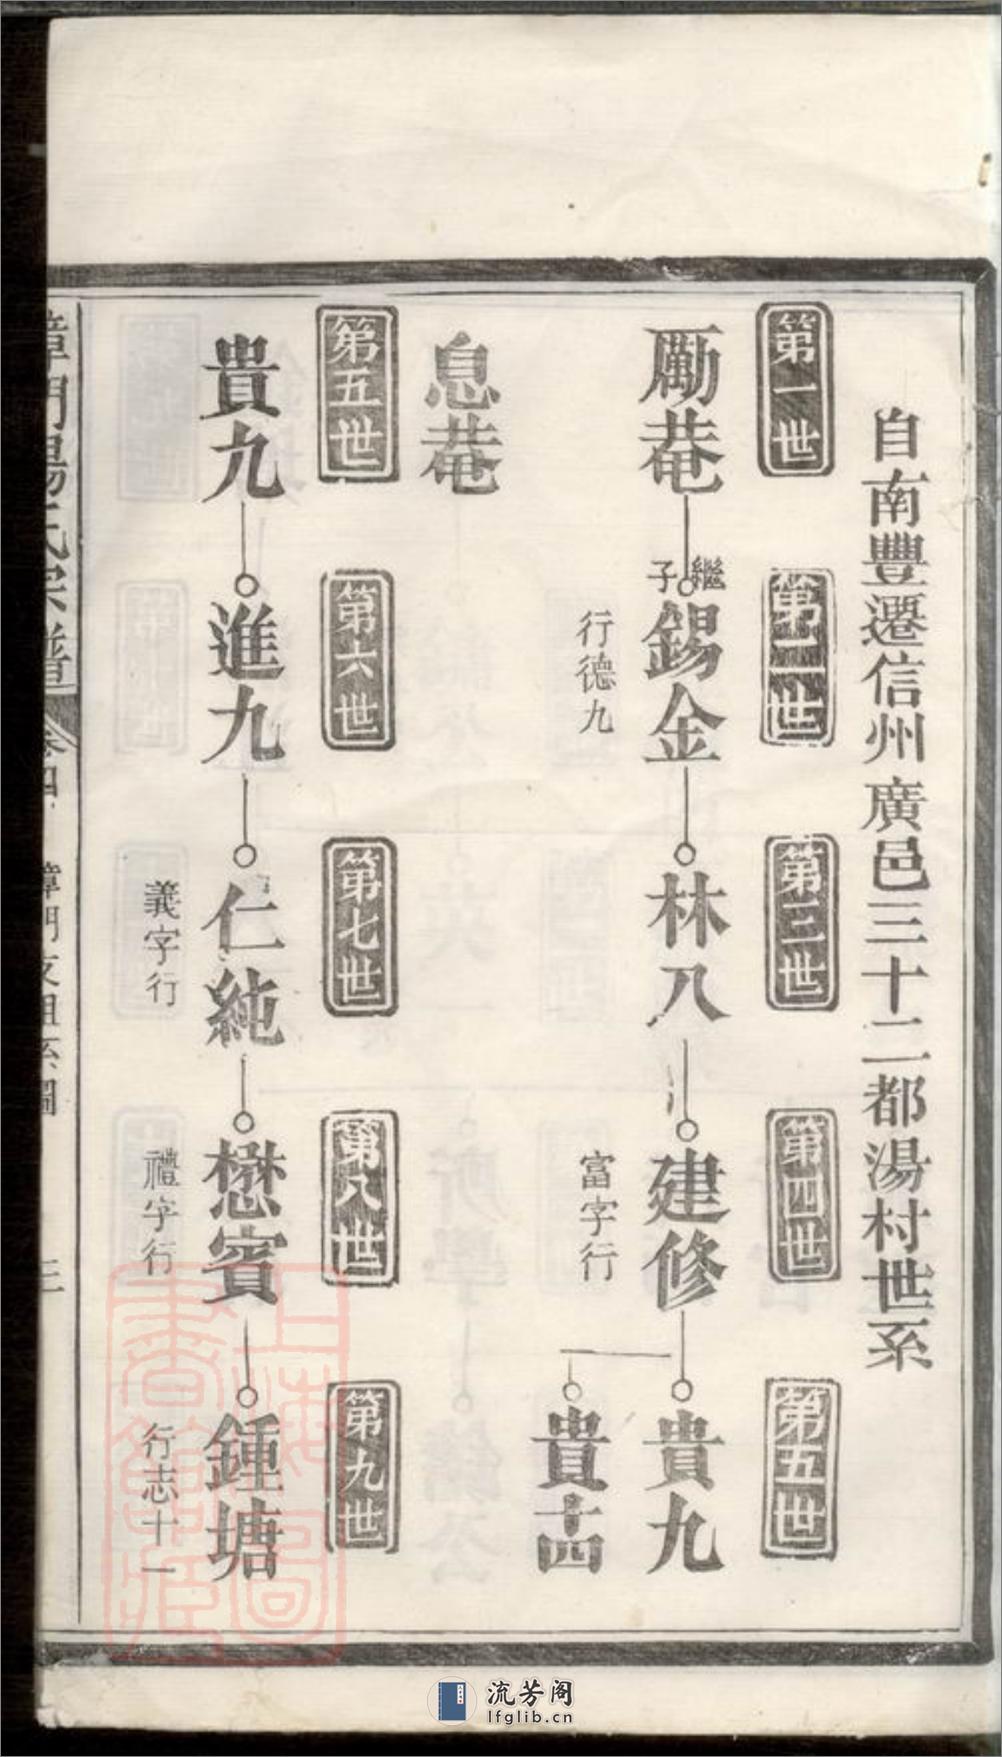 自南豐遷信州廣邑三十二都湯村世系
第一世
第二世
第三世
第四世
第五世
勵菴
繼子
錫金
行德九
林八
建修
富字行
貴九
貴十四
息菴
第五世
第六世
第七世
第八世
第九世
貴九
進九
仁純
義字行
懋賓
禮字行
鍾塘
行志十一
卷四
三
上海圖書館藏
流芳阁
lfglib.cn